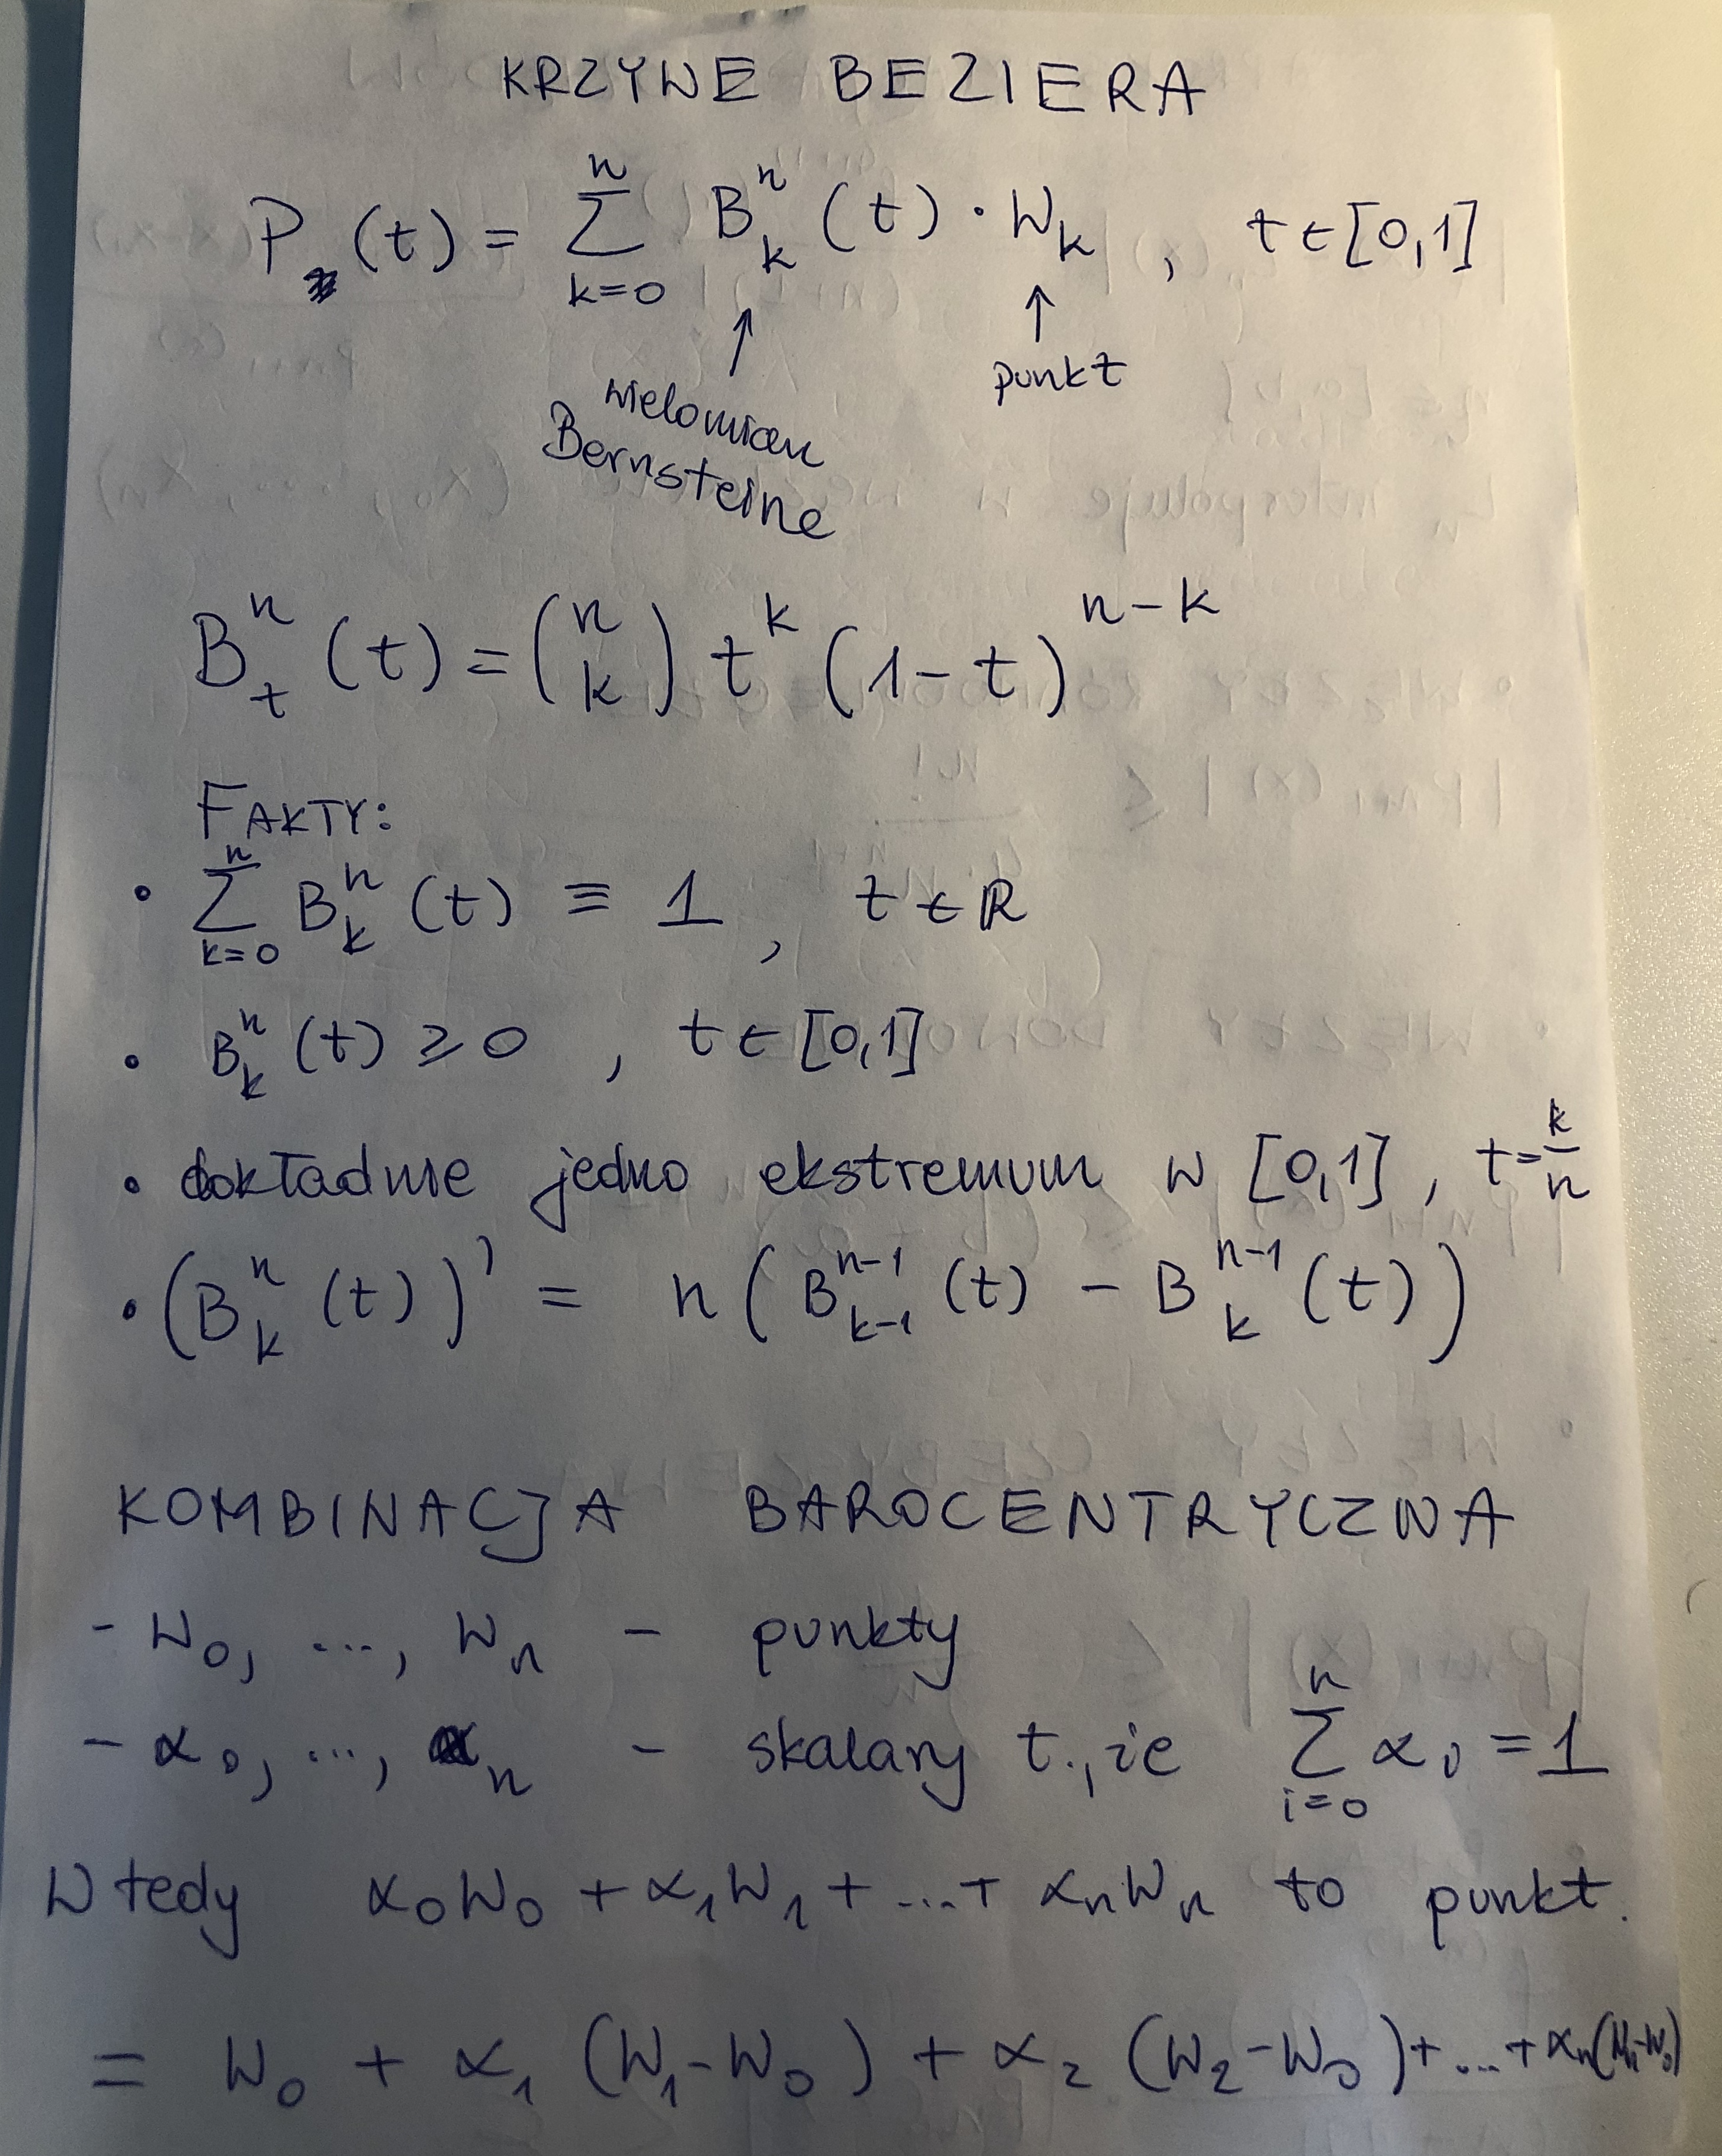 KRZYWE BEZIERA
P(t) = \sum_{k=0}^{n} B_k^n (t) · W_k , t ∈ [0,1]
↑ ↑
wielomian punkt
Bernsteina
B_t^n (t) = \binom{n}{k} t^k (1-t)^{n-k}
FAKTY:
• \sum_{k=0}^{n} B_k^n (t) ≡ 1 , t ∈ ℝ
• B_k^n (t) ≥ 0 , t ∈ [0,1]
• dokładnie jedno ekstremum w [0,1] , t = \frac{k}{n}
• (B_k^n (t))' = n (B_{k-1}^{n-1} (t) - B_k^{n-1} (t))
KOMBINACJA BAROCENTRYCZNA
- W_0, ..., W_n - punkty
- α_0, ..., α_n - skalary t., że \sum_{i=0}^{n} α_i = 1
Wtedy α_0W_0 + α_1W_1 + ... + α_nW_n to punkt.
= W_0 + α_1 (W_1-W_0) + α_2 (W_2-W_0) + ... + α_n(W_n-W_0)